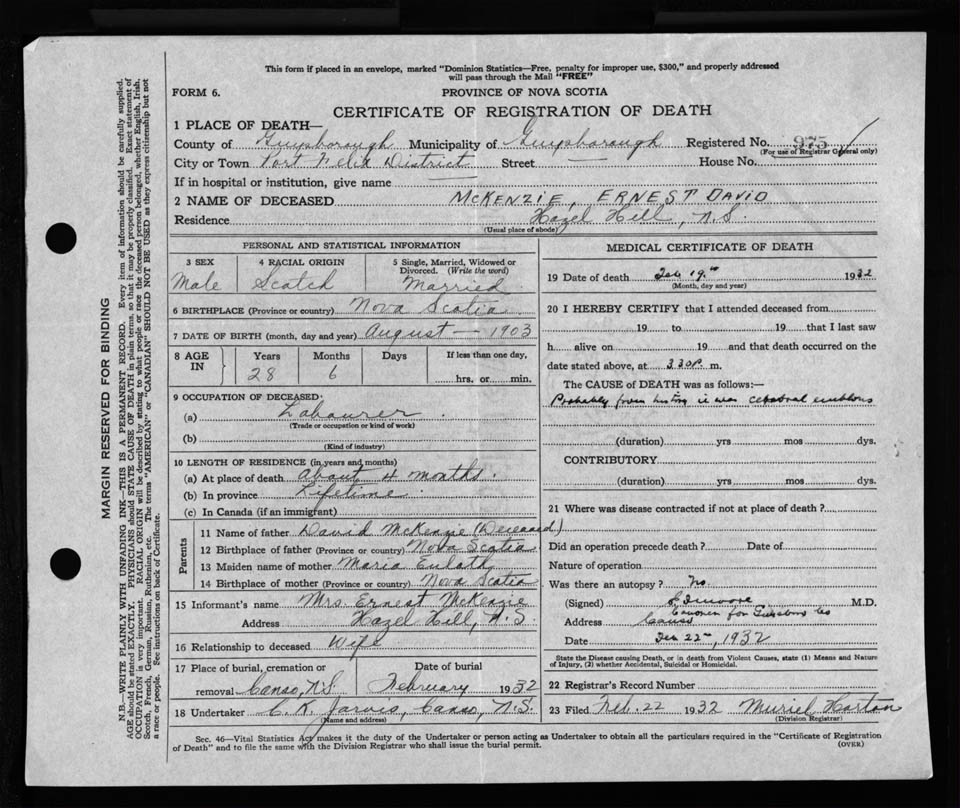 This form if placed in an envelope, marked "Dominion Statistics—Free, penalty for improper use, $300," and properly addressed
will pass through the Mail "FREE"
FORM 6. PROVINCE OF NOVA SCOTIA
CERTIFICATE OF REGISTRATION OF DEATH
1 PLACE OF DEATH—
County of Guysborough Municipality of Guysborough Registered No. 975
(For use of Registrar General only)
City or Town Port Felix District Street — House No.
If in hospital or institution, give name
2 NAME OF DECEASED McKENZIE, ERNEST DAVID
Residence Hazel Hill, N.S.
(Usual place of abode)
PERSONAL AND STATISTICAL INFORMATION
3 SEX 4 RACIAL ORIGIN 5 Single, Married, Widowed or
Divorced. (Write the word)
Male Scotch Married
6 BIRTHPLACE (Province or country) Nova Scotia
7 DATE OF BIRTH (month, day and year) August — 1903
8 AGE IN Years Months Days If less than one day,
28 6 hrs. or min.
9 OCCUPATION OF DECEASED
(a) Labourer
(Trade or occupation or kind of work)
(b)
(Kind of industry)
10 LENGTH OF RESIDENCE (in years and months)
(a) At place of death about 4 months.
(b) In province Lifetime
(c) In Canada (if an immigrant)
Parents
11 Name of father David McKenzie (Deceased)
12 Birthplace of father (Province or country) Nova Scotia
13 Maiden name of mother Maria
14 Birthplace of mother (Province or country) Nova Scotia
15 Informant's name Mrs. Ernest McKenzie
Address Hazel Hill, N.S.
16 Relationship to deceased Wife
17 Place of burial, cremation or Date of burial
removal Canso, N.S. February 1932
18 Undertaker C. K. Jarvis, Canso, N.S.
(Name and address)
MEDICAL CERTIFICATE OF DEATH
19 Date of death Feb 19th 1932
(Month, day and year)
20 I HEREBY CERTIFY that I attended deceased from
19 to 19 that I last saw
h alive on 19 and that death occurred on the
date stated above, at 330P. m.
The CAUSE of DEATH was as follows:—
Probably from history it was cerebral embolus
(duration) yrs mos dys.
CONTRIBUTORY
(duration) yrs mos dys.
21 Where was disease contracted if not at place of death?
Did an operation precede death? Date of
Nature of operation
Was there an autopsy? No
(Signed) M.D.
Coroner for Guysboro Co
Address Canso
Date Feb 22nd, 1932
State the Disease causing Death, or in death from Violent Causes, state (1) Means and Nature
of Injury, (2) whether Accidental, Suicidal or Homicidal.
22 Registrar's Record Number
23 Filed Feb. 22 1932 Muriel Horton
(Division Registrar)
Sec. 46—Vital Statistics Act makes it the duty of the Undertaker or person acting as Undertaker to obtain all the particulars required in the "Certificate of Registration
of Death" and to file the same with the Division Registrar who shall issue the burial permit. (OVER)
MARGIN RESERVED FOR BINDING
N.B.—WRITE PLAINLY WITH UNFADING INK—THIS IS A PERMANENT RECORD. Every item of information should be carefully supplied.
AGE should be stated EXACTLY. PHYSICIANS should state CAUSE OF DEATH in plain terms, so that it may be properly classified. Exact statement of
OCCUPATION is very important. RACIAL ORIGIN will be described by stating to what people or race the deceased person belonged, whether English, Irish,
Scotch, French, German, Russian, Ruthenian, etc. The terms "AMERICAN" or "CANADIAN" SHOULD NOT BE USED as they express citizenship but not
a race or people. See instructions on back of Certificate.